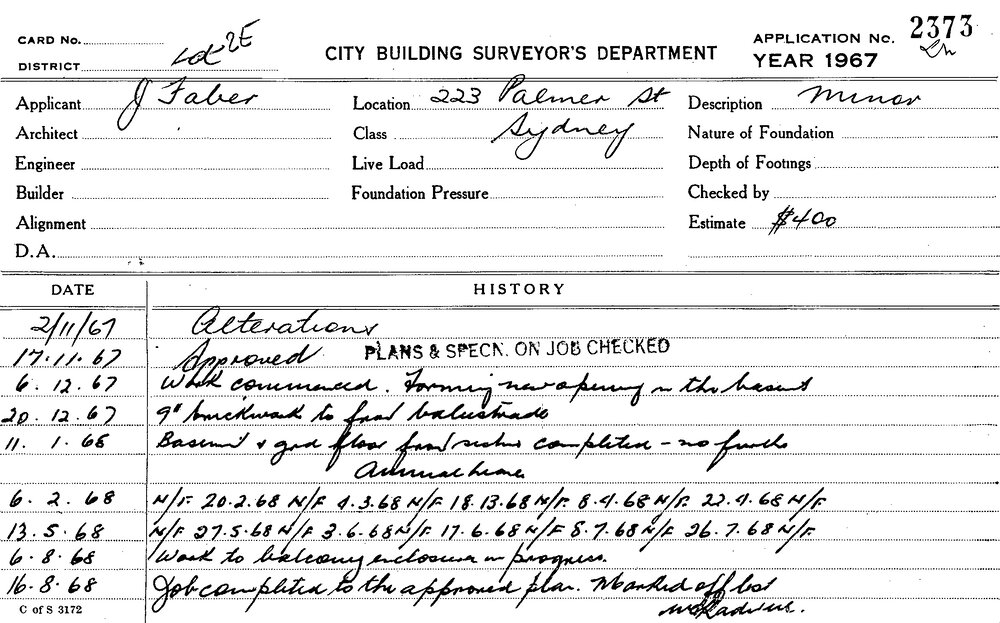 CARD No.
DISTRICT
2E
CITY BUILDING SURVEYOR'S DEPARTMENT
APPLICATION No. 2373
YEAR 1967
Applicant J Faber
Location 223 Palmer St
Description Minor
Architect
Class Sydney
Nature of Foundation
Engineer
Live Load
Depth of Footings
Builder
Foundation Pressure
Checked by
Alignment
Estimate $400
D.A.
DATE HISTORY
2/11/67 Alterations
17.11.67 Approved PLANS & SPECN. ON JOB CHECKED
6.12.67 Work commenced. Forming new opening in the basemt
20.12.67 9" brickwork to front balustrade
11.1.68 Basemt & grd floor front completed - no
Annual leave
6.2.68 N/F 20.2.68 N/F 4.3.68 N/F 18.13.68 N/F. 8.4.68 N/F. 22.4.68 N/F
13.5.68 N/F 27.5.68 N/F 3.6.68 N/F 17.6.68 N/F 8.7.68 N/F 26.7.68 N/F.
6.8.68 Work to balcony enclosure in progress.
16.8.68 Job completed to the approved plan. Marked off
C of S 3172